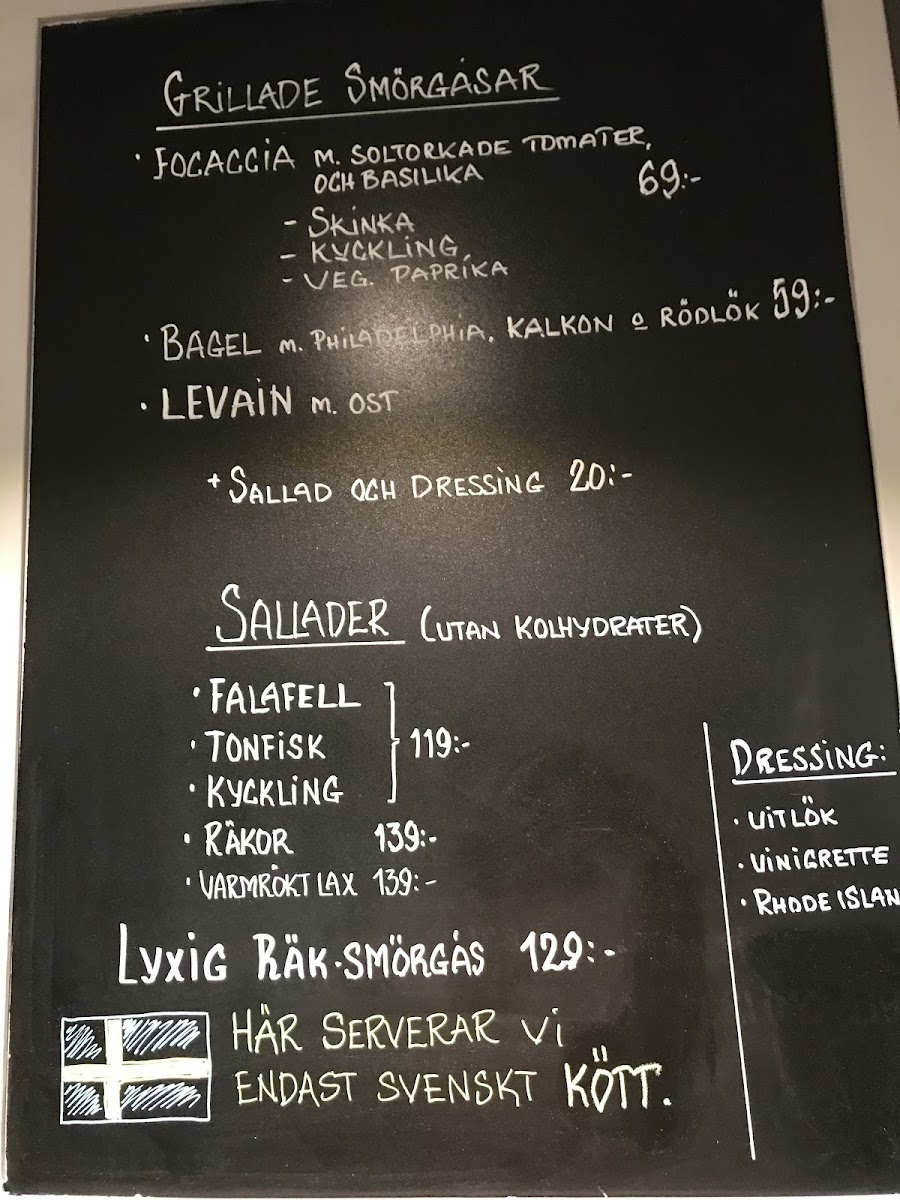 GRILLADE SMÖRGÅSAR
· FOCACCIA M. SOLTORKADE TOMATER,
OCH BASILIKA 69:-
- SKINKA
- KYCKLING,
- VEG. PAPRIKA
· BAGEL M. PHILADELPHIA, KALKON O RÖDLÖK 59:-
· LEVAIN M. OST
+ SALLAD OCH DRESSING 20:-
SALLADER (UTAN KOLHYDRATER)
· FALAFELL
· TONFISK 119:-
· KYCKLING
· RÄKOR 139:-
· VARMRÖKT LAX 139:-
DRESSING:
· VITLÖK
· VINIGRETTE
· RHODE ISLAN
LYXIG RÄK-SMÖRGÅS 129:-
HÄR SERVERAR VI
ENDAST SVENSKT KÖTT.